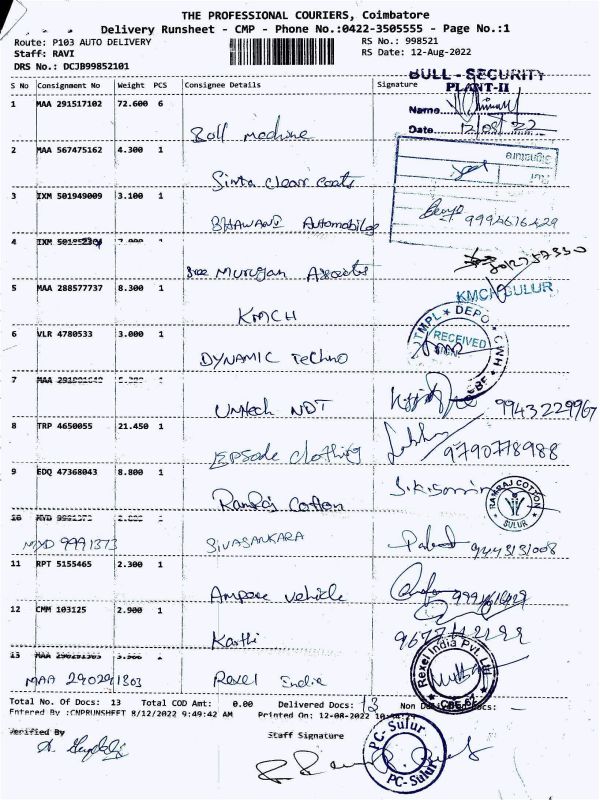 THE PROFESSIONAL COURIERS, Coimbatore
Delivery Runsheet - CMP - Phone No.:0422-3505555 - Page No.:1
Route: P103 AUTO DELIVERY RS No.: 998521
Staff: RAVI RS Date: 12-Aug-2022
DRS No.: DCJB99852101
S No Consignment No Weight PCS Consignee Details Signature
BULL - SECURITY
PLANT-II
Name
Date 12/08/22
1 MAA 291517102 72.600 6
Ball machine
2 MAA 567475162 4.300 1
Signature
Sinta clear coats
3 IXM 501949009 3.100 1
BHAWANI Automobiles 9994616429
4 IXM
Sree Murugan Associates
5 MAA 288577737 8.300 1
KMCH SULUR
KMCH
6 VLR 4780533 3.000 1
TMPL DEPO CNH CBE
RECEIVED
DYNAMIC Techno
7 MAA
Unitech NDT 9943229967
8 TRP 4650055 21.450 1
Epsode clothing 9790778988
9 EDQ 47368043 8.800 1
RAMRAJ COTTON SULUR
Ramraj Cotton
10
MYD 9991373 SIVASANKARA 9443131008
11 RPT 5155465 2.300 1
Ampere vehicle
12 CMM 103125 2.900 1
Karthi
13 MAA
Rekel India Pvt. Ltd CBE-62
MAA 290291303 Rekel India
Total No. Of Docs: 13 Total COD Amt: 0.00 Delivered Docs: 13
Entered By :CNPRUNSHEET 8/12/2022 9:49:42 AM Printed On: 12-08-2022
Verified By Staff Signature
PC-Sulur
PC-Sulur